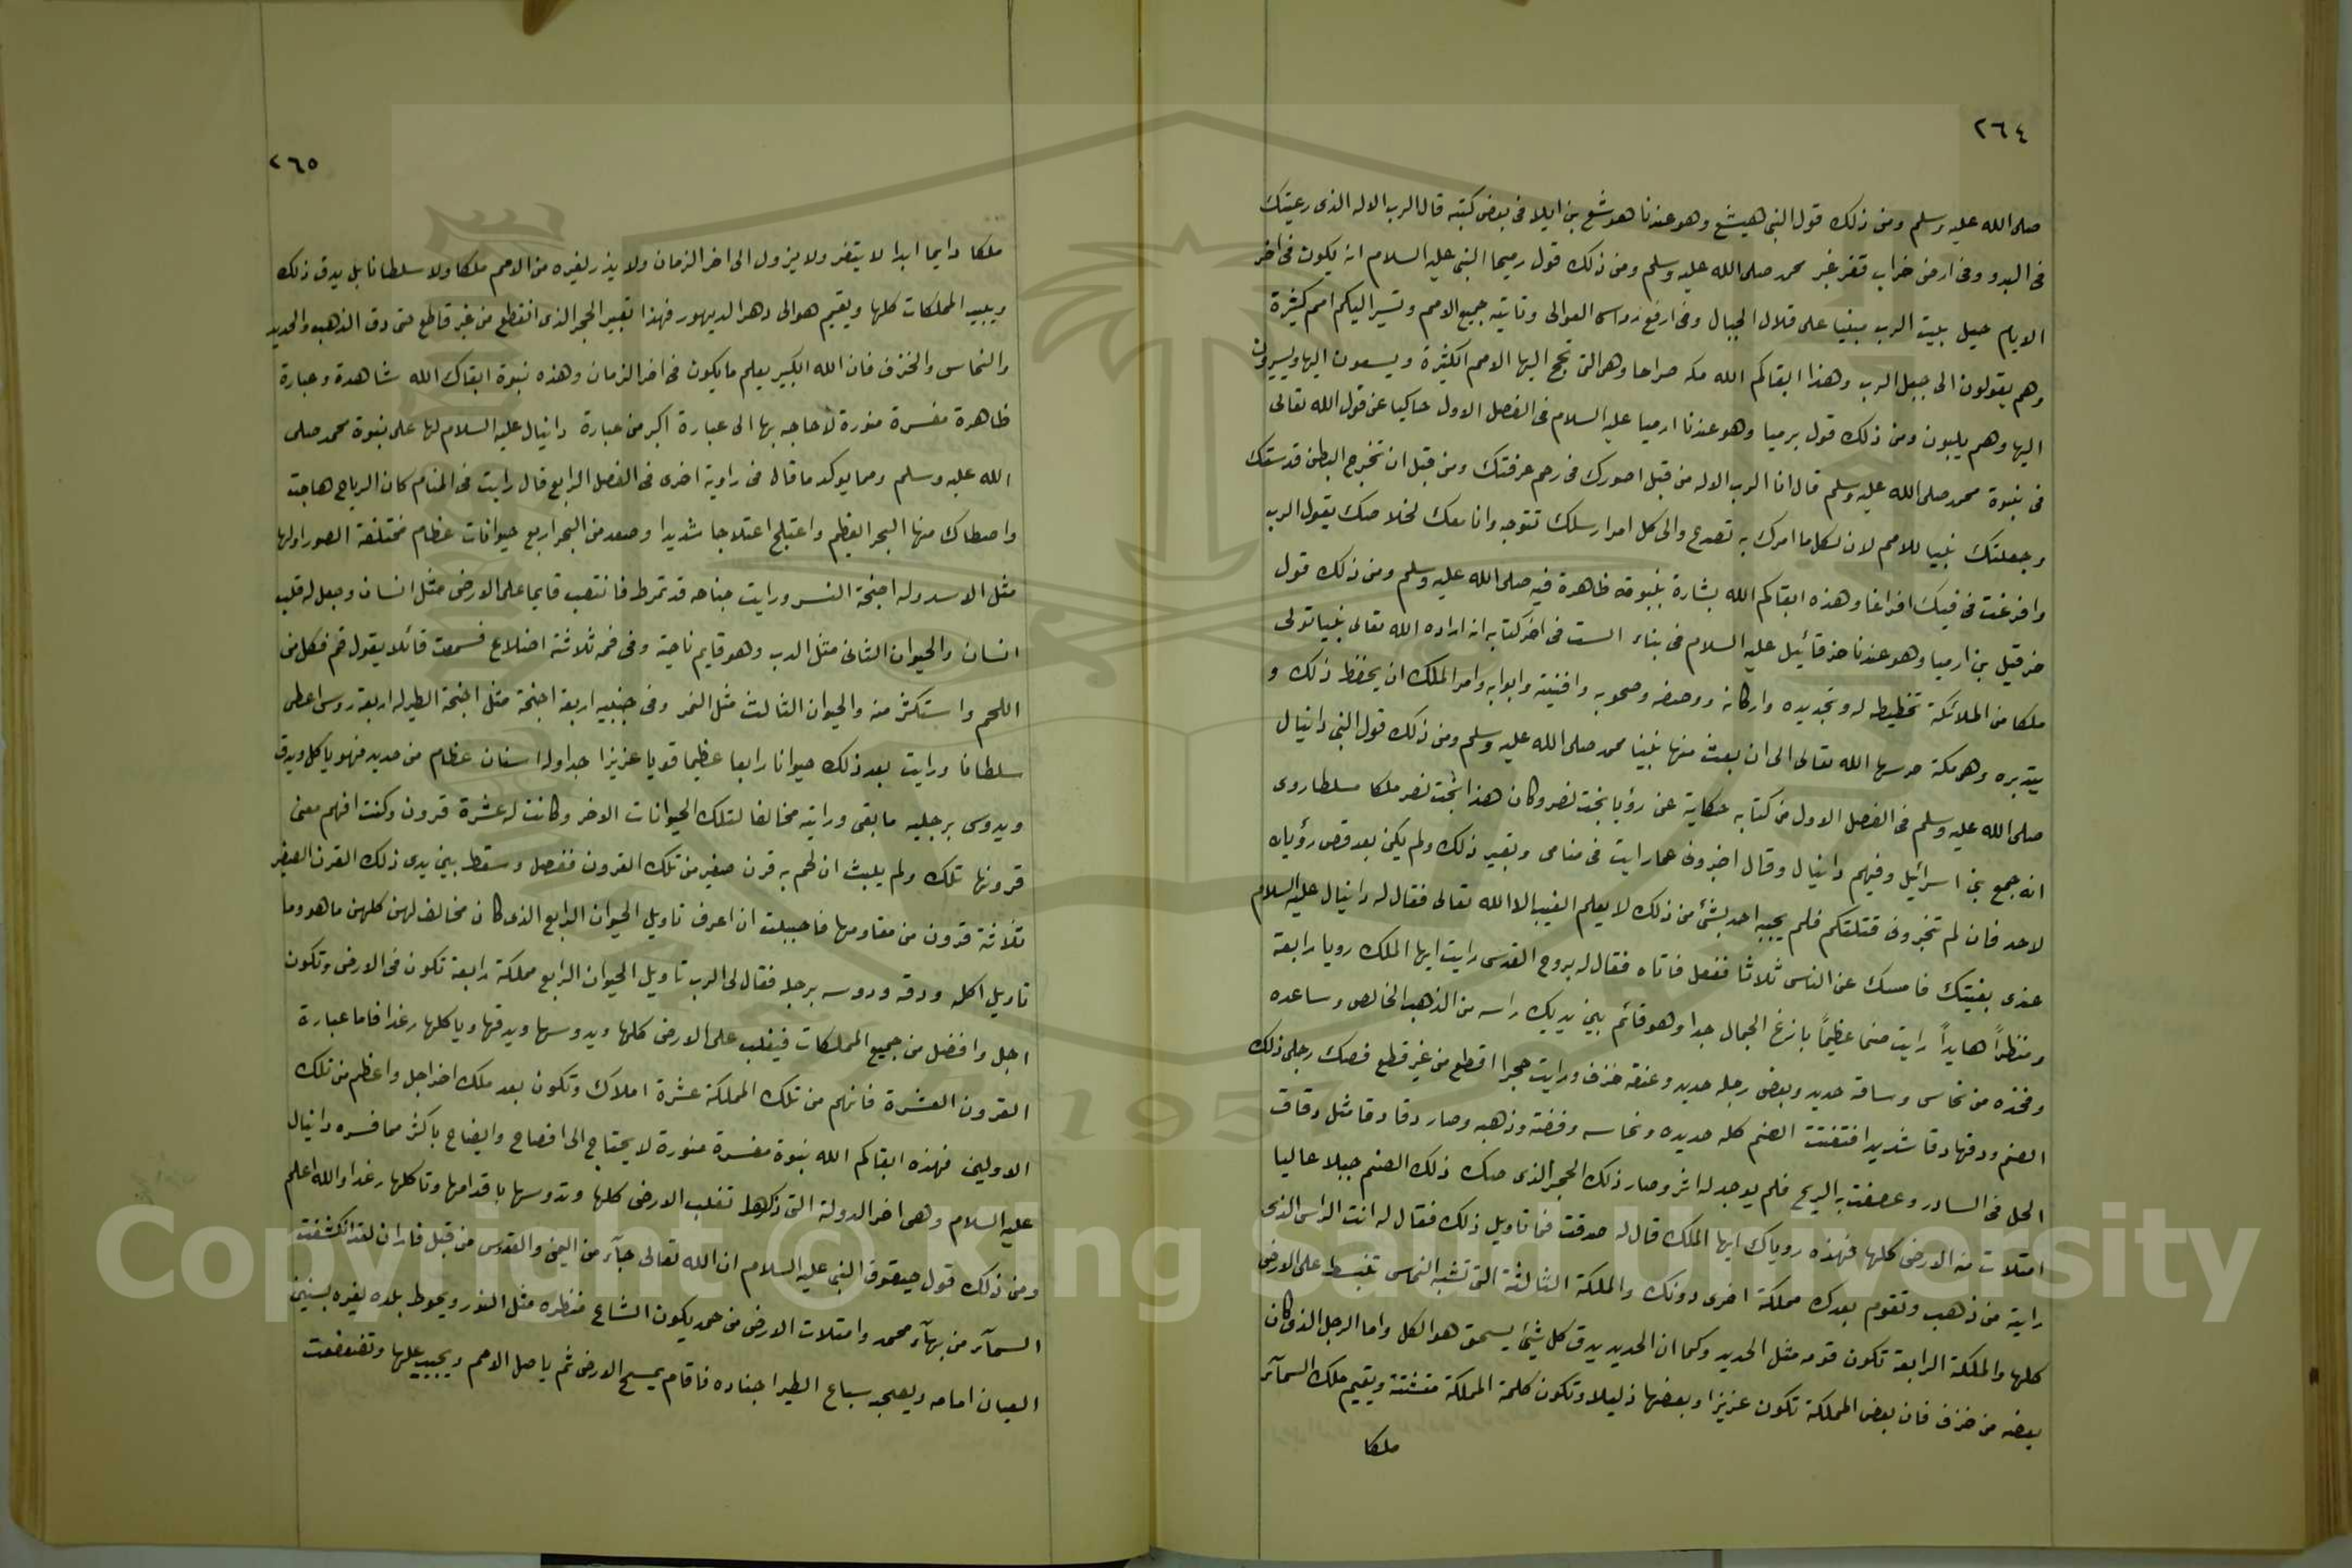 ٢٦٤
صلى الله عليه وسلم ومن ذلك قول النبى هيشع وهو عندنا هوشع بن ايلا فى بعض كتبه قال الرب الاله الذى رعيتك
فى البدو وفى ارض خراب قفر غير محمد صلى الله عليه وسلم ومن ذلك قول رميحا النبى عليه السلام انه يكون فى اخر
الايام جبل بيت الرب مبنيا على قلال الجبال وفى ارفع روس العوالى وتاتيه جميع الامم وتسير اليكم امم كثيرة
وهم يقولون الى جبل الرب وهذا ابقاكم الله مكه صراحا وهى التى تحج اليها الامم الكثيرة ويسعون اليها ويسيرون
اليها وهم يلبون ومن ذلك قول يرميا وهو عندنا ارميا عليه السلام فى الفصل الاول حاكيا عن قول الله تعالى
فى نبوة محمد صلى الله عليه وسلم قال انا الرب الاله من قبل اصورك فى رحم عرفتك ومن قبل ان تخرج البطن قدستك
وجعلتك نبيا للامم لان لكل ما امرك به تصدع والى كل امر ارسلك تتوجه وانا معك لخلاصك يقول الرب
وافرغت فى فيك افراغا وهذه ابقاكم الله بشارة بنبوته ظاهرة فيه صلى الله عليه وسلم ومن ذلك قول
حزقيل بن ارميا وهو عندنا حزقائيل عليه السلام فى بناء الست فى اخر كتابه انه اراده الله تعالى نبيا تولى
ملكا من الملائكة تخطيطه له وتجديده واركانه ووحضه وصحوبه وافنيته وابوابه وامر الملك ان يحفظ ذلك و
يتدبره وهى مكة حرسها الله تعالى الى ان بعث منها نبينا محمد صلى الله عليه وسلم ومن ذلك قول النبى دانيال
صلى الله عليه وسلم فى الفصل الاول من كتابه حكاية عن رؤيا بخت نصر وكان هذا بخت نصر ملكا مسلطا روى
انه جمع بنى اسرائيل وفيهم دانيال وقال اخبرونى عما رايت فى منامى وبعبير ذلك ولم يكن بعد قص رؤياه
لاحد فان لم تخبرونى قتلتكم فلم يجبه احد بشئ من ذلك لا يعلم الغيب الا الله تعالى فقال له دانيال عليه السلام
عندى بغيتك فامسك عن الناس ثلاثا ففعل فاتاه فقال له بروح القدس رايت ايها الملك رويا رابعة
ومنظراً هايداً رايت صنما عظيماً بازغ الجمال جدا وهو قائم بين يديك راسه من الذهب الخالص وساعده
وفخذه من نحاس وساقه حديد وبعض رجله حديد وعنقه خزف ورايت حجرا اقطع من غير قطع فصك رجلى ذلك
الصنم ودقها دقا شديدا فتفتت الصنم كله حديده ونحاسه وفضته وذهبه وصار دقا دقا مثل دقاق
الحل فى السادر وعصفت به الريح فلم يوجد له اثر وصار ذلك الحجر الذى صك ذلك الصنم جبلا عاليا
امتلات منه الارض كلها فهذه روياك ايها الملك قال له صدقت فما تاويل ذلك فقال له انت الراس الذى
رايته من ذهب وتقوم بعدك مملكة اخرى دونك والملكة الثالثة التى تشبه النحاس تنبسط على الارض
كلها والملكة الرابعة تكون قوته مثل الحديد وكما ان الحديد يدق كل شئ يسحق هو الكل واما الرجل الذى كان
بعضه من خزف فان بعض المملكة تكون عزيزا وبعضها ذليلا وتكون كلمة المملكة متشتتة ويقيم ملك السمآء
ملكا
٢٦٥
ملكا دايما ابدا لا يتغير ولا يزول الى اخر الزمان ولا يذر لغيره من الامم ملكا ولا سلطانا بل يدق ذلك
ويبيد المملكات كلها ويقيم هو الى دهر الديهور فهذا تعبير الحجر الذى انقطع من غير قاطع حتى دق الذهب والحديد
والنحاس والخزف فان الله الكبير يعلم ما يكون فى اخر الزمان وهذه نبوة ابقاك الله شاهدة وعبارة
ظاهرة مفسرة منورة لا حاجه بها الى عبارة اكبر من عبارة دانيال عليه السلام لها على نبوة محمد صلى
الله عليه وسلم ومما يوكد ما قال فى راوية اخرى فى الفصل الرابع قال رايت فى المنام كان الرياح هاجت
واصطاك منها البحر العظيم واعتلج اعتلاجا شديدا وصعد من البحر اربع حيوانات عظام مختلفة الصور اولها
مثل الاسد وله اجنحة النسر ورايت جناحه قد تمرط فانتصب قايما على الارض مثل انسان وجعل له قلب
انسان والحيوان الثانى مثل الدب وهو قايم ناحية وفى فمه ثلاثة اضلاع فسمعت قائلا يقول قم فكل من
اللحم واستكثر منه والحيوان الثالث مثل النمر وفى جنبيه اربعة اجنحة مثل اجنحة الطير له اربعة روس اعطى
سلطانا ورايت بعد ذلك حيوانا رابعا عظيما قويا عزيزا جدا وله اسنان عظام من حديد فهو ياكل ويدق
ويدوس برجليه ما بقى ورايته مخالفا لتلك الحيوانات الاخر وكانت له عشرة قرون وكنت افهم معنى
قرونها تلك ولم يلبث ان لحم به قرن صغير من تلك القرون ففصل وسقط بين يدى ذلك القرن الصغير
ثلاثة قرون من مقاومها فاحببت ان اعرف تاويل الحيوان الرابع الذى كان مخالف لهن كلهن ما هو وما
تاويل اكله ودقه ودوسه برجله فقال لى الرب تاويل الحيوان الرابع مملكة رابعة تكون فى الارض وتكون
اجل وافضل من جميع المملكات فيغلب على الارض كلها ويدوسها ويدقها وياكلها رغدا فاما عبارة
القرون العشرة فانهم من تلك المملكة عشرة املاك وتكون بعد ملك اخر اجل واعظم من تلك
الاولين فهذه ابقاكم الله نبوة مفسرة منورة لا يحتاج الى افصاح وايضاح باكثر مما فسره دانيال
عليه السلام وهى اخر الدولة التى ذكرها تغلب الارض كلها وتدوسها باقدامها وتاكلها رغدا والله اعلم
ومن ذلك قول حيقوق النبى عليه السلام ان الله تعالى جآء من اليمن والقدوس من قبل فاران لقد انكشفت
السمآء من بهآء محمد وامتلات الارض من حمد يكون الشاع منظره مثل النور ويحوط بلده بغيره بسنين
العيان امامه ويصحبه سباع الطير اجناده فاقام يمسح الارض ثم ياصل الامم ويجيب عليها وتضعضعت
Copyright © King Saud University
195